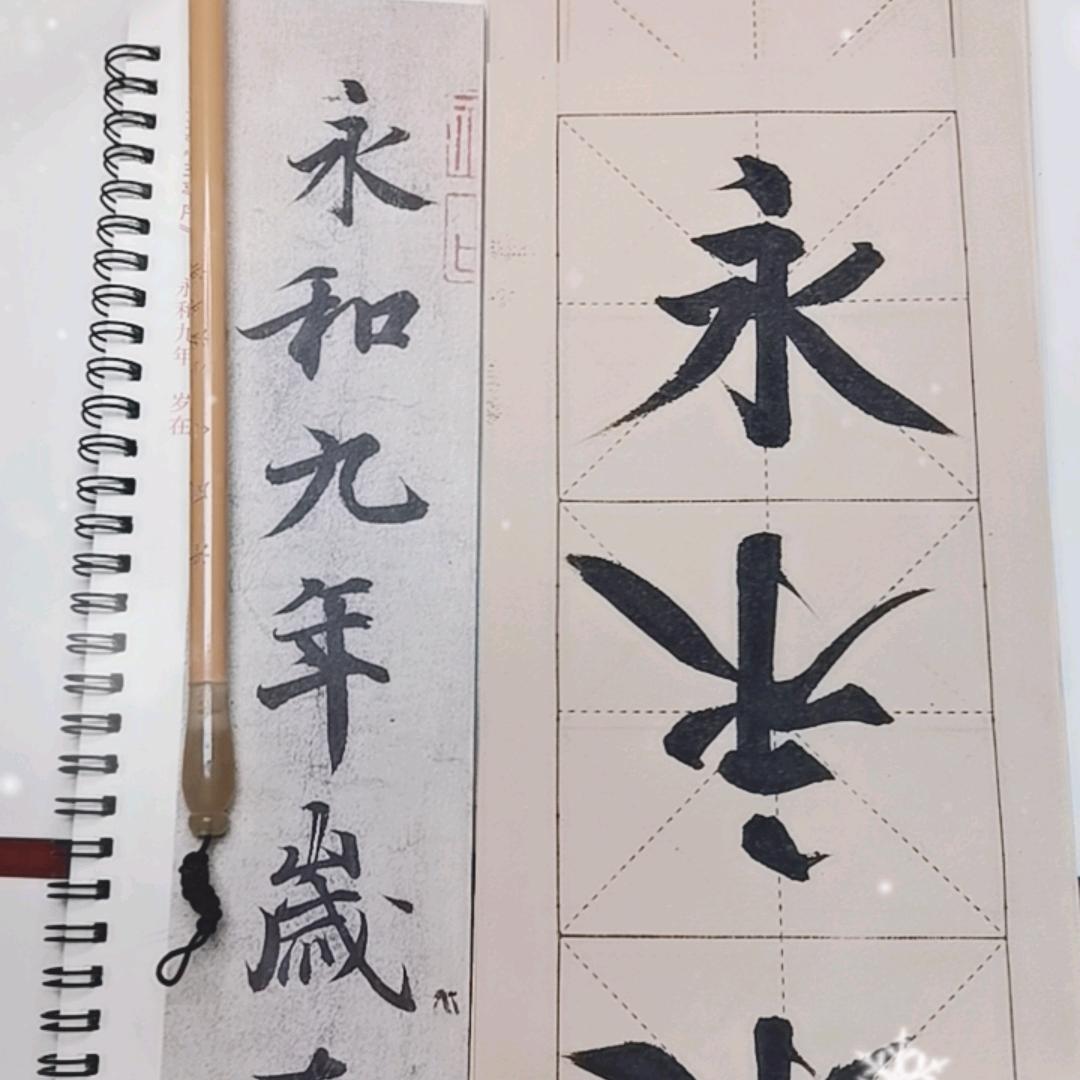 永永
永和九年歲
永和九年 岁在